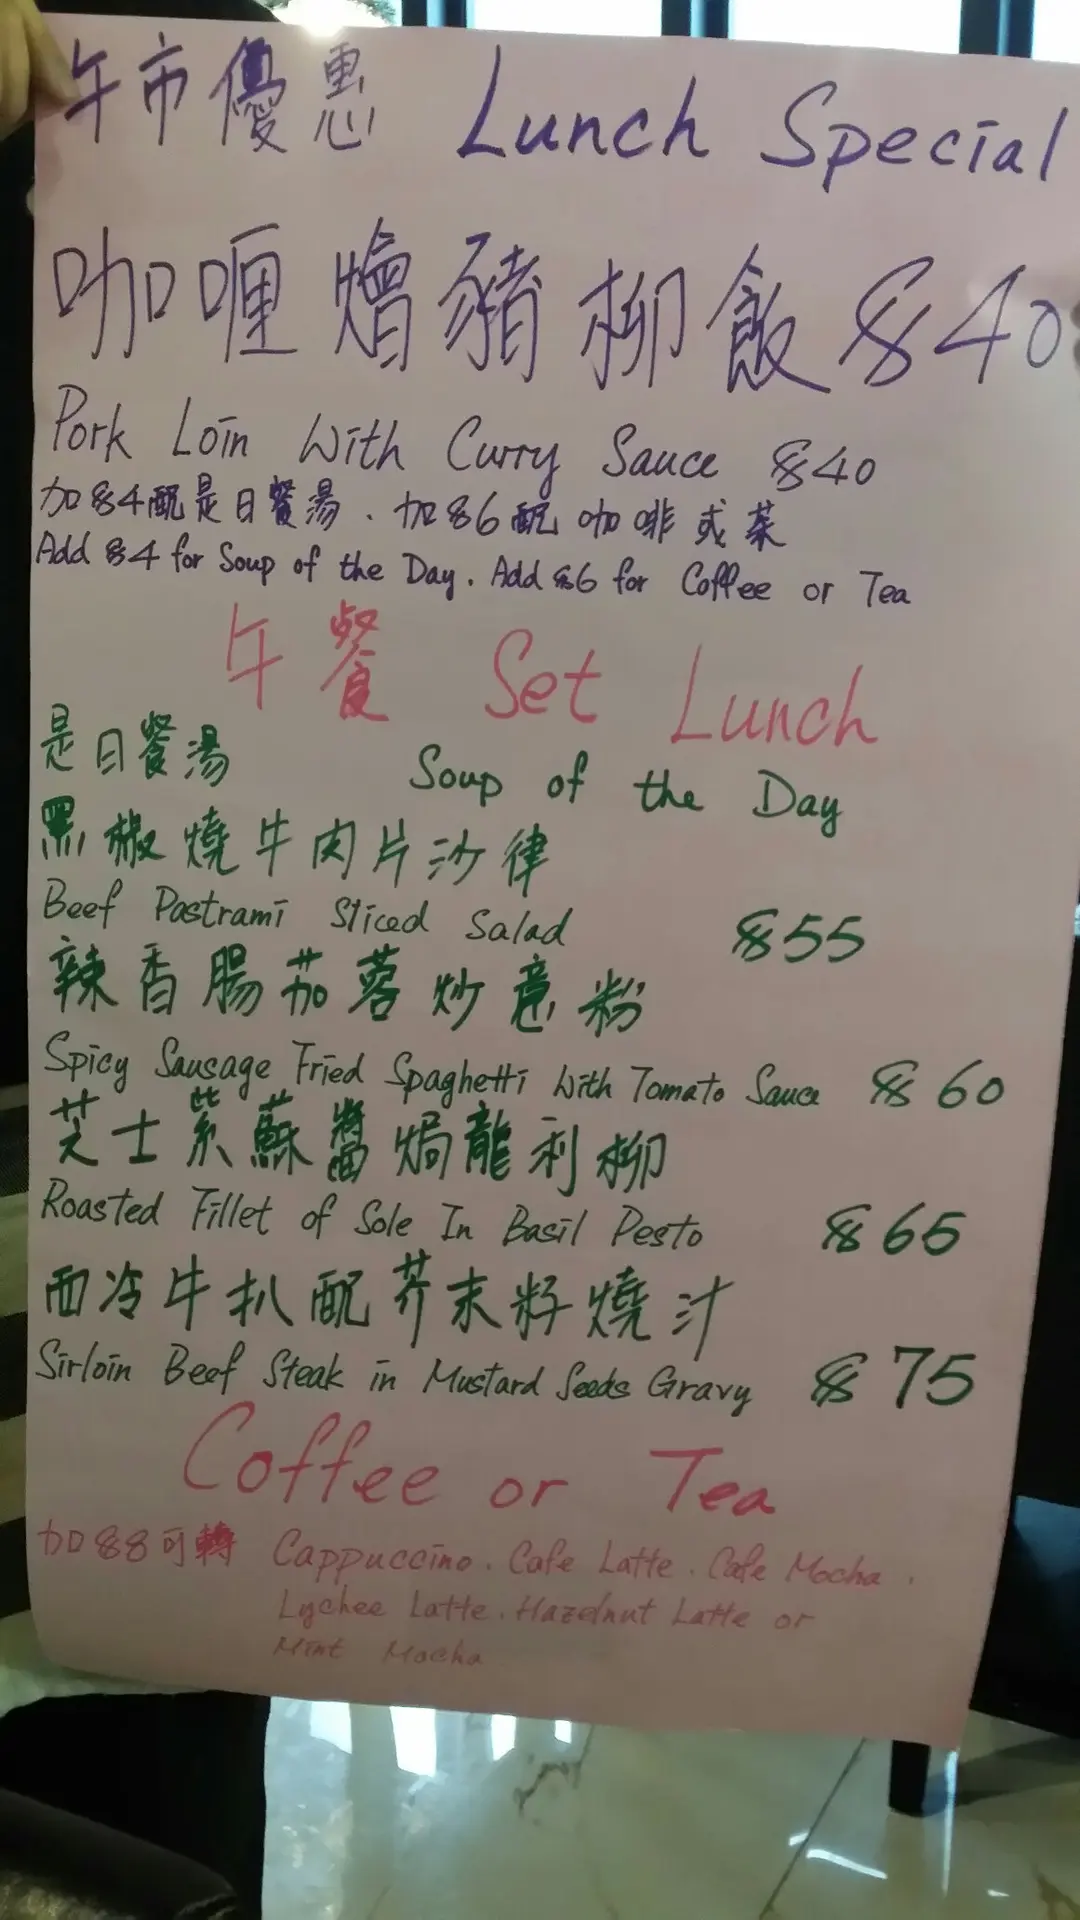 午市優惠 Lunch Special
咖喱燴豬柳飯 $40
Pork Loin With Curry Sauce $40
加$4配是日餐湯．加$6配咖啡或茶
Add $4 for Soup of the Day. Add $6 for Coffee or Tea
午餐 Set Lunch
是日餐湯 Soup of the Day
黑椒燒牛肉片沙律
Beef Pastrami Sliced Salad $55
辣香腸茄蓉炒意粉
Spicy Sausage Fried Spaghetti With Tomato Sauce $60
芝士紫蘇醬焗龍利柳
Roasted Fillet of Sole In Basil Pesto $65
西冷牛扒配芥末籽燒汁
Sirloin Beef Steak in Mustard Seeds Gravy $75
Coffee or Tea
加$8可轉 Cappuccino. Cafe Latte. Cafe Mocha.
Lychee Latte. Hazelnut Latte or
Mint Mocha